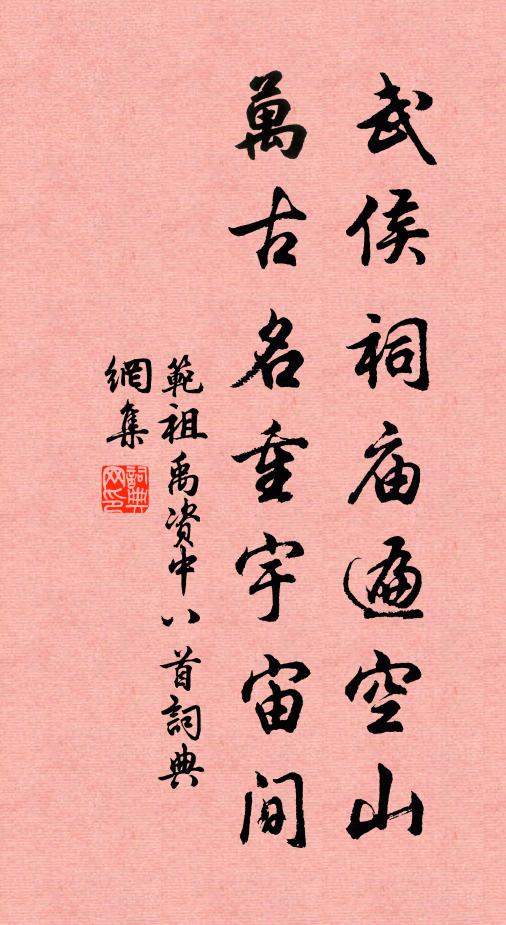 武侯祠庙遍空山
萬古名重宇宙間
範祖禹资中八首詞典
網集
詞典网印